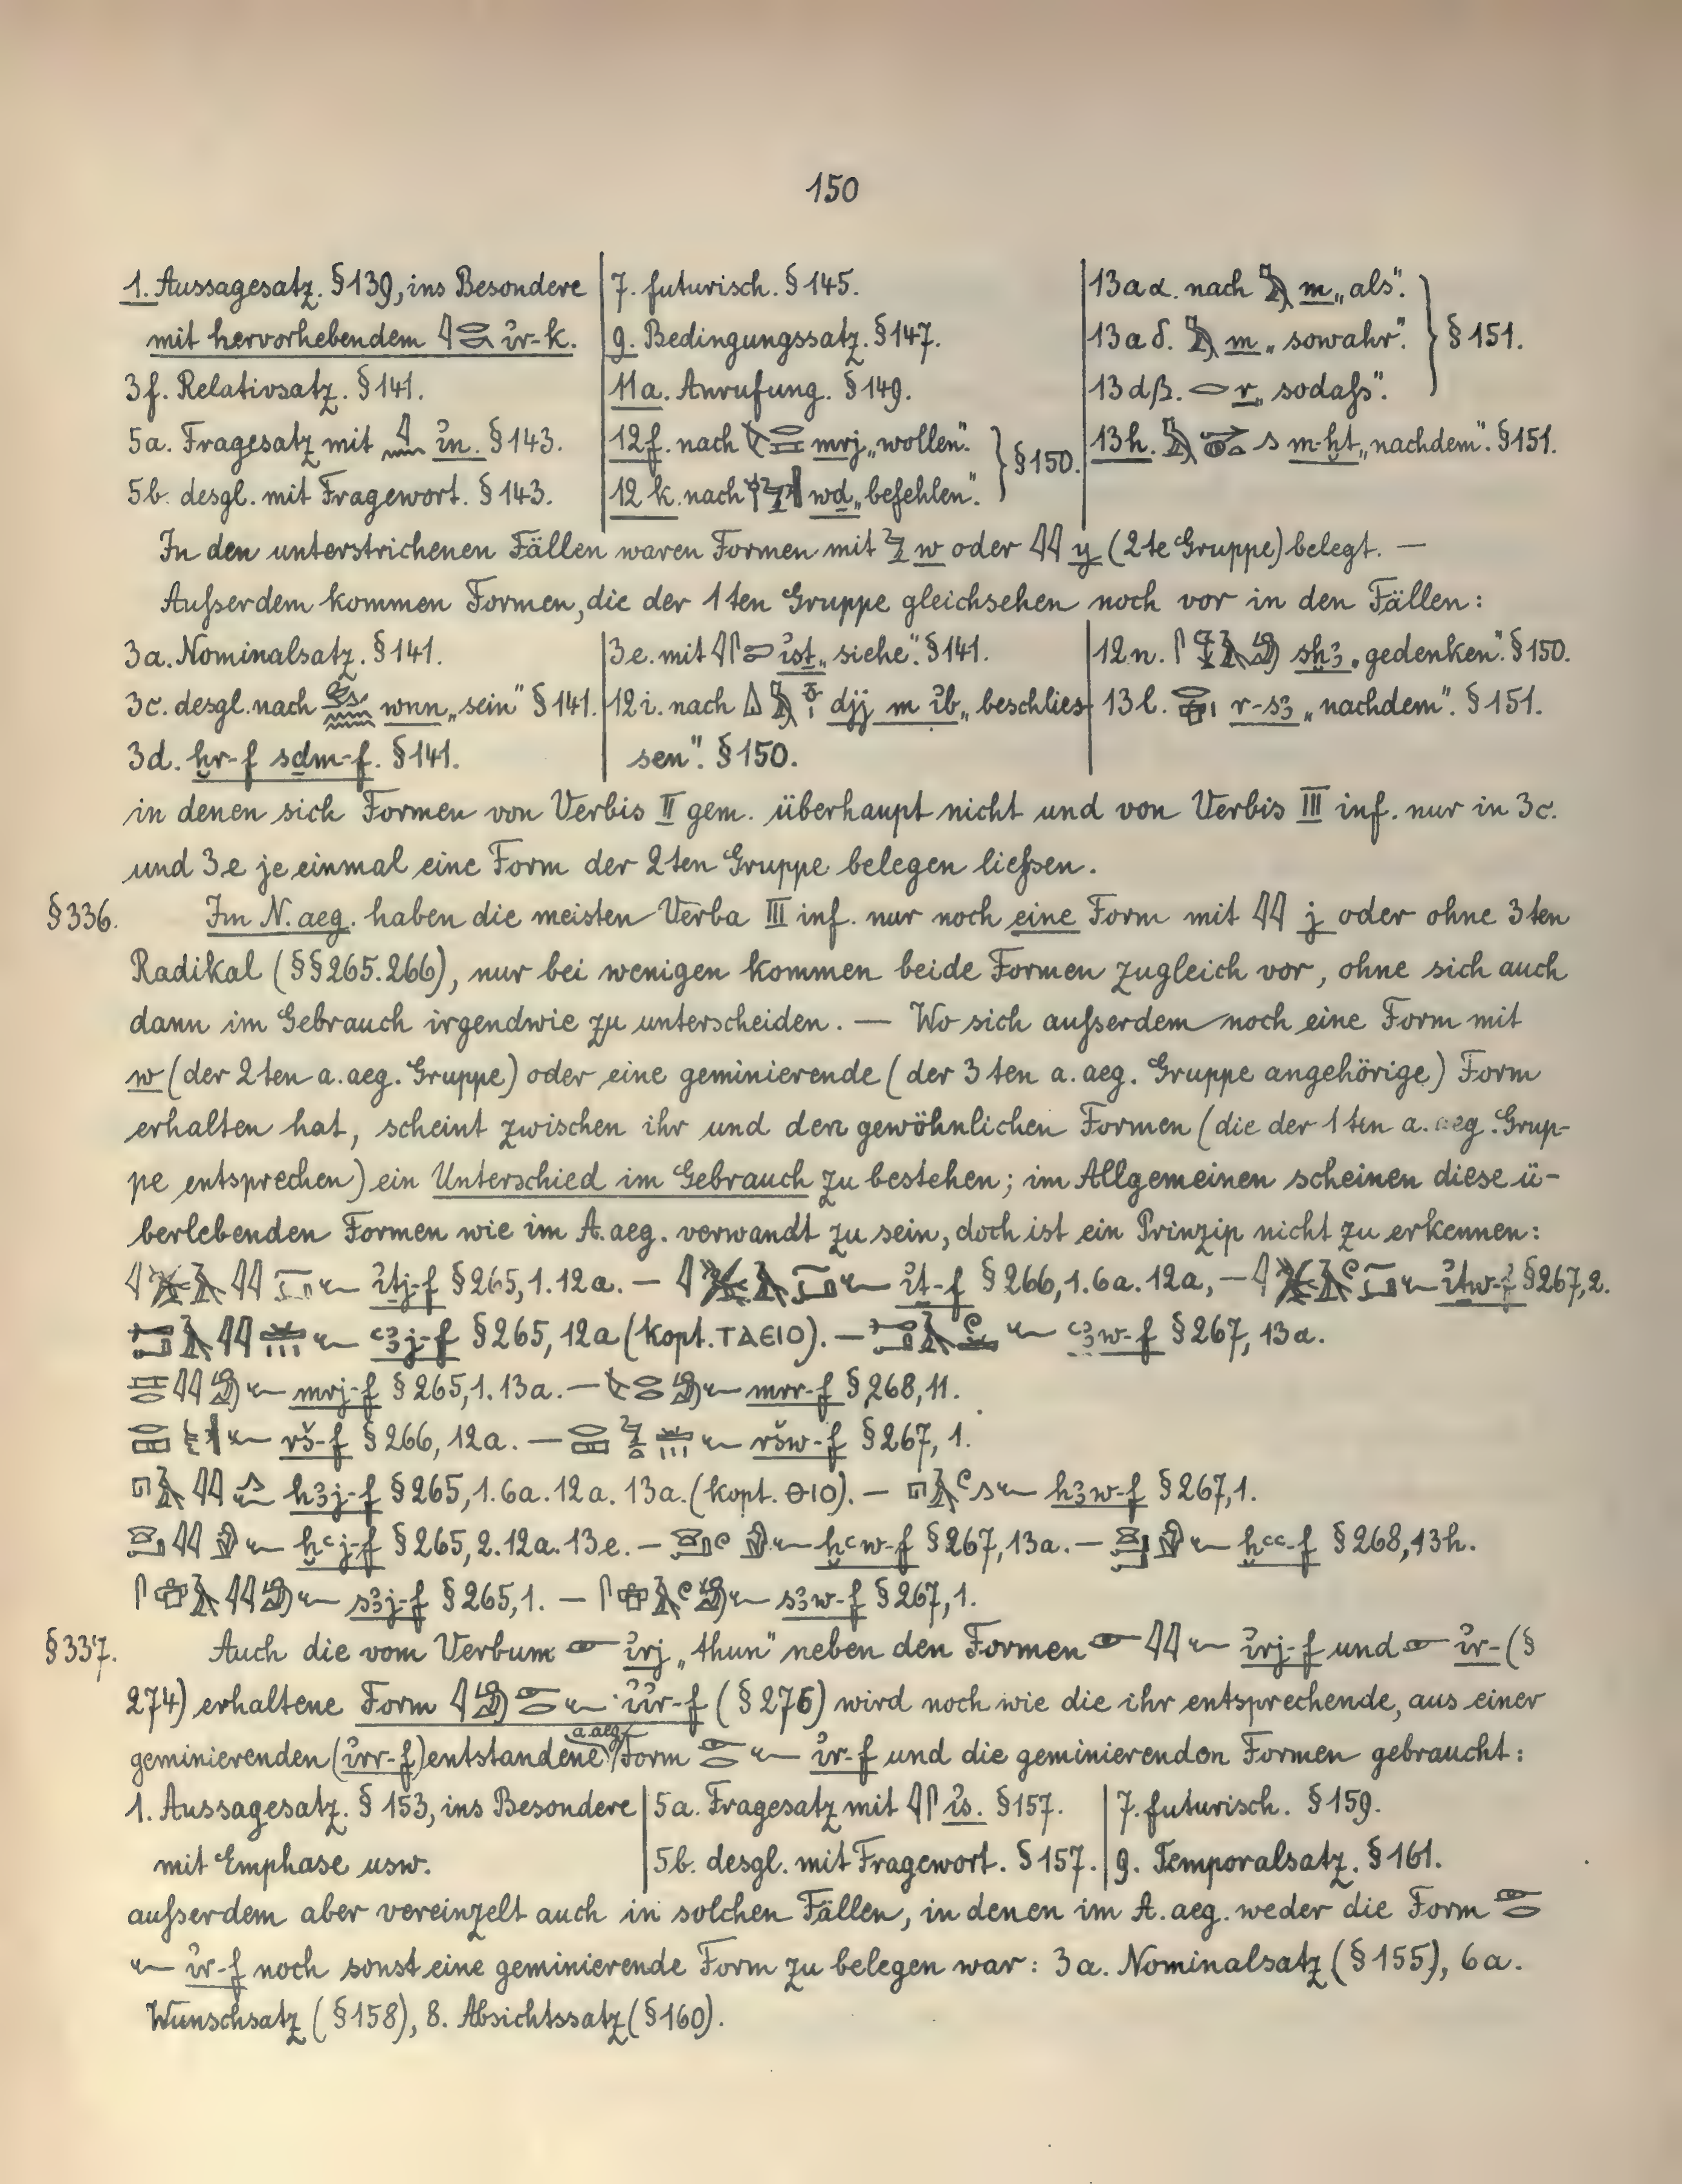 150
1. Aussagesatz. § 139, ins Besondere
mit hervorhebendem ı͗r-k.
3f. Relativsatz. § 141.
5a. Fragesatz mit ı͗n. § 143.
5b. desgl. mit Fragewort. § 143.
7. futurisch. § 145.
9. Bedingungssatz. § 147.
11a. Anrufung. § 149.
12f. nach mrj „wollen".
12k. nach wḏ „befehlen".
} § 150.
13a α. nach m „als".
13a δ. m „sowahr".
13dβ. r „sodaſs".
} § 151.
13h. m-ḫt „nachdem". § 151.
In den unterstrichenen Fällen waren Formen mit w oder y (2te Gruppe) belegt. —
Auſserdem kommen Formen, die der 1ten Gruppe gleichsehen noch vor in den Fällen:
3a. Nominalsatz. § 141.
3c. desgl. nach wnn „sein" § 141.
3d. ḫr-f sḏm-f. § 141.
3e. mit ı͗st „siehe". § 141.
12i. nach djj m ı͗b „beschlies
sen". § 150.
12n. sḫꜣ „gedenken". § 150.
13l. r-sꜣ „nachdem". § 151.
in denen sich Formen von Verbis II gem. überhaupt nicht und von Verbis III inf. nur in 3c.
und 3e je einmal eine Form der 2ten Gruppe belegen lieſsen.
§ 336. Im N. aeg. haben die meisten Verba III inf. nur noch eine Form mit j oder ohne 3ten
Radikal (§§ 265. 266), nur bei wenigen kommen beide Formen zugleich vor, ohne sich auch
dann im Gebrauch irgendwie zu unterscheiden. — Wo sich auſserdem noch eine Form mit
w (der 2ten a. aeg. Gruppe) oder eine geminierende (der 3ten a. aeg. Gruppe angehörige) Form
erhalten hat, scheint zwischen ihr und den gewöhnlichen Formen (die der 1ten a. aeg. Grup-
pe entsprechen) ein Unterschied im Gebrauch zu bestehen; im Allgemeinen scheinen diese ü-
berlebenden Formen wie im A. aeg. verwandt zu sein, doch ist ein Prinzip nicht zu erkennen:
ı͗ṯj-f § 265, 1. 12a. — ı͗ṯ-f § 266, 1. 6a. 12a, — ı͗ṯw-f § 267, 2.
ꜥꜣj-f § 265, 12a (kopt. ⲦⲀⲈⲒⲞ). — ꜥꜣw-f § 267, 13a.
mrj-f § 265, 1. 13a. — mrr-f § 268, 11.
rš-f § 266, 12a. — ršw-f § 267, 1.
hꜣj-f § 265, 1. 6a. 12a. 13a. (kopt. ⲐⲒⲞ). — hꜣw-f § 267, 1.
ḫꜥj-f § 265, 2. 12a. 13e. — ḫꜥw-f § 267, 13a. — ḫꜥꜥ-f § 268, 13h.
sꜣj-f § 265, 1. — sꜣw-f § 267, 1.
§ 337. Auch die vom Verbum ı͗rj „thun" neben den Formen ı͗rj-f und ı͗r- (§
274) erhaltene Form ı͗ı͗r-f (§ 276) wird noch wie die ihr entsprechende, aus einer
geminierenden (ı͗rr-f) entstandene a. aeg. Form ı͗r-f und die geminierenden Formen gebraucht:
1. Aussagesatz. § 153, ins Besondere
mit Emphase usw.
5a. Fragesatz mit ı͗s. § 157.
5b. desgl. mit Fragewort. § 157.
7. futurisch. § 159.
9. Temporalsatz. § 161.
auſserdem aber vereinzelt auch in solchen Fällen, in denen im A. aeg. weder die Form
ı͗r-f noch sonst eine geminierende Form zu belegen war: 3a. Nominalsatz (§ 155), 6a.
Wunschsatz (§ 158), 8. Absichtssatz (§ 160).